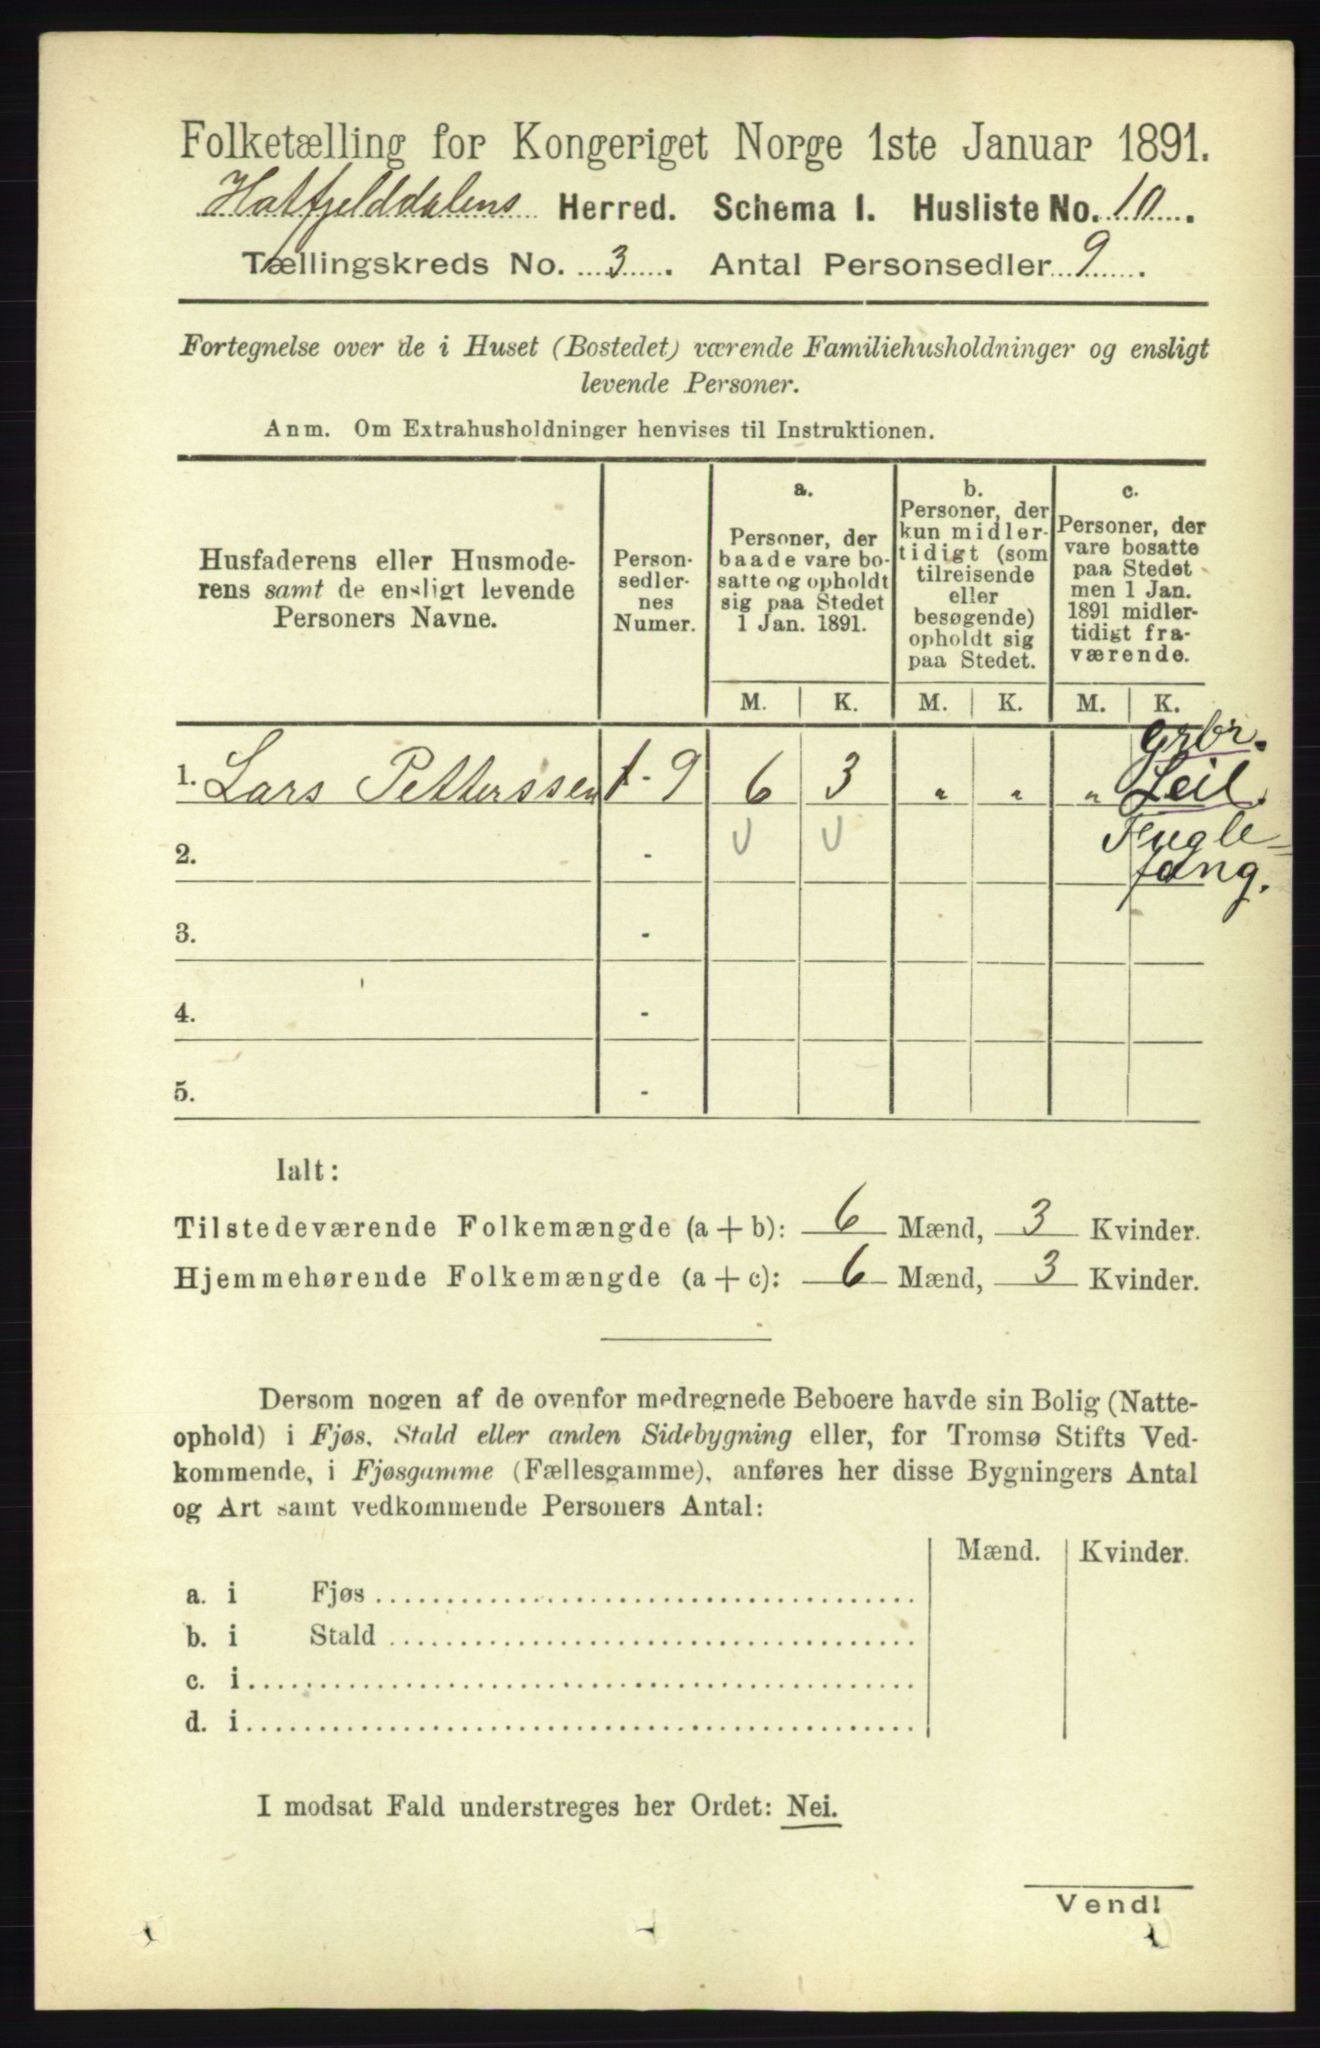 Folketælling for Kongeriget Norge 1ste Januar 1891.
Hatfjelddalens Herred. Schema I. Husliste No. 10.
Tællingskreds No. 3. Antal Personsedler 9
Fortegnelse over de i Huset (Bostedet) værende Familiehusholdninger og ensligt
levende Personer.
Anm. Om Extrahusholdninger henvises til Instruktionen.
Husfaderens eller Husmode-
rens samt de ensligt levende
Personers Navne.
Person-
sedler-
nes
Numer.
a.
Personer, der
baade vare bo-
satte og opholdt
sig paa Stedet
1 Jan. 1891.
b.
Personer, der
kun midler-
tidigt (som
tilreisende
eller
besøgende)
opholdt sig
paa Stedet.
c.
Personer, der
vare bosatte
paa Stedet
men 1 Jan.
1891 midler-
tidigt fra-
værende.
M. K. M. K. M. K.
grbr.
1. Lars Petterssen 1 - 9 6 3 " " " Leil.
Fugle=
fang.
2. -
3. -
4. -
5. -
Ialt:
Tilstedeværende Folkemængde (a + b): 6 Mænd, 3 Kvinder.
Hjemmehørende Folkemængde (a + c): 6 Mænd, 3 Kvinder.
Dersom nogen af de ovenfor medregnede Beboere havde sin Bolig (Natte-
ophold) i Fjøs, Stald eller anden Sidebygning eller, for Tromsø Stifts Ved-
kommende, i Fjøsgamme (Fællesgamme), anføres her disse Bygningers Antal
og Art samt vedkommende Personers Antal:
Mænd. Kvinder.
a. i Fjøs
b. i Stald
c. i
d. i
I modsat Fald understreges her Ordet: Nei.
Vend!